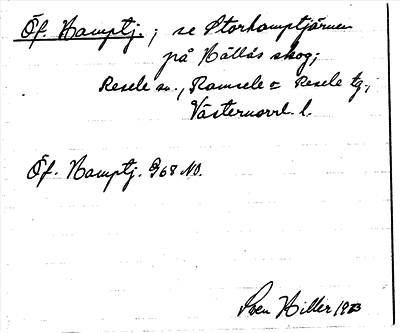 Öf. Kamptj.; se Storkamptjärnen
på Hällås skog;
Resele sn., Ramsele o Resele tg.,
Västernorrl. l.
Öf. Kamptj. 68 NO.
Sven Hiller 1933